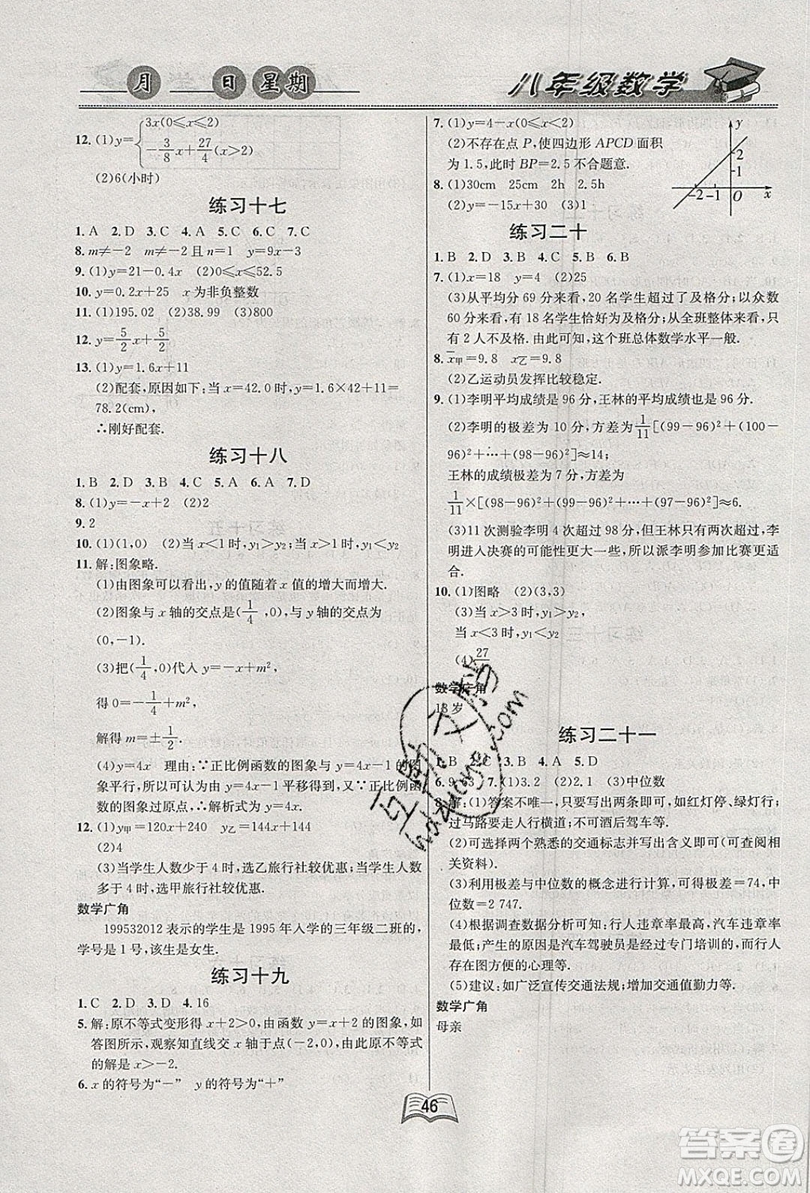 月 日 星期
八年级数学
12. (1)y={3x(0≤x≤2)
-3/8x+27/4(x>2)
(2)6(小时)
练习十七
1. A 2. D 3. D 4. A 5. B 6. C 7. C
8. m≠-2 m≠-2 且 n=2 y=9x-3
9. (1)y=21-0.4x (2)0≤x≤52.5
10. y=0.2x+25 x 为非负整数
11. (1)195.02 (2)38.95 (3)800
12. y=5/2x+5/2
13. (1)y=1.6x+11
(2)配套,原因如下:当 x=42.0 时,y=1.6×42+11=
78.2(cm),
∴刚好配套.
练习十八
1. B 2. D 3. D 4. B 5. C 6. A 7. C
8. (1)y=-x+2 (2)y=4x
9. 2
10. (1)(1,0) (2)当 x<1 时,y₁>y₂;当 x>1 时,y₁<y₂
11. 解:图象略.
(1)由图象可以看出,y 的值随着 x 值的增大而增大.
(2)图象与 x 轴的交点是(1/4,0),与 y 轴的交点为
(0,-1).
(3)把(1/4,0)代入 y=-x+m²,
得 0=-1/4+m²,
解得 m=±1/2.
(4)y=4x 理由:∵正比例函数的图象与已知函数的图
象平行,所以比例系数也为 4,正比例函数的图象过原点,
正比例函数图象过原点,∴解析式为 y=4x.
12. (1)y甲=120x+240 y乙=144x+144
(2)4
(3)当学生人数少于 4 时,选乙旅行社较优惠;当学生人数
多于 4 时,选甲旅行社较优惠.
数学广角
199532012 表示的学生是 1995 年入学的三年级二班的,
学号是 1 号,该生是女生.
练习十九
1. C 2. D 3. D 4. 16
5. 解:原不等式变形得 x+2>0,由函数 y=x+2 的图象,如
答图所示,观察知直线交 x 轴于点(-2,0),故此原不等式
的解是 x>-2.
6. x 的符号为“-” y 的符号为“+”
7. (1)y=4-x(0≤x≤2)
(2)不存在点 P,使四边形 APCD 面积
为 1.5,此时 BP=2.5 不合题意.
8. (1)30cm 25cm 2h 2.5h
(2)y=-15x+30 (3)1
y
2
1
-2 -1 O x
练习二十
1. B 2. D 3. C 4. C 5. B 6. B
7. (1)x=18 y=4 (2)25
(3)从平均分 69 分来看,20 名学生超过了及格分;以众数
60 分来看,有 18 名学生恰好为及格分;从全班整体来看,
只有 2 人不及格.由此来看,这个班总体数学水平一般.
8. x甲=9.8 x乙=9.8
(2)乙运动员发挥比较稳定.
9. (1)李明平均成绩是 96 分,王林的平均成绩也是 96 分.
(2)李明的极差为 10 分,方差为 1/11[(99-96)²+(100-
96)²+…+(95-96)²]≈8.2.
王林的成绩极差为 7 分,方差为
1/11×[(98-96)²+(99-96)²+…+(97-96)²]≈6.
(3)11 次测验李明有 4 次超过 98 分,王林只有 2 次,李
明进入决赛的可能性更多一些,所以派李明参加比赛更适
合.
10. (1)图略 (2)(3,3)
(3)当 x>3 时,y₁>y₂
当 x<3 时,y₁<y₂
(4)27/4
数学广角
18 岁
练习二十一
B 3. C 4. A 5. D
6. 9 7. (1)2 (2)3 (3)中位数
解:(1)答案不唯一,只要写出两条即可,如红灯停、绿灯行;
过马路要走人行横道;不可酒后驾车等.
(2)可选择两个熟悉的交通标志并写出含义即可(可查阅
相关资料).
(3)利用极差与中位数的概念进行计算,可得极差=74,中
位数=2 747.
(4)根据调查数据分析可知:行人违章率最高,汽车违章率
最低,产生的原因是汽车驾驶员是专门培训的,而行人存
在图方便的心理等.
(5)建议:如广泛宣传交通法规;增加交通值勤力等.
数学广角
母亲
46
互助文学
hdzuoye.com
答案圈
MXQE.COM